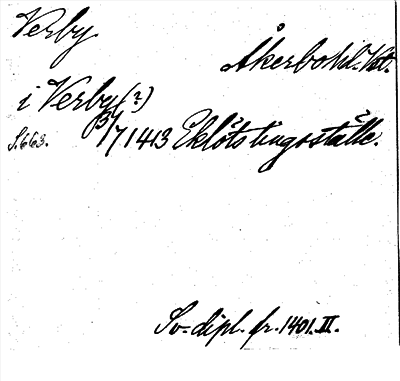 Verby
Åkerbo hd. Vst.
i Verby (?)
S. 663. 3/7 1413 Eklöts tingsställe.
Sv. dipl. fr. 1401. II.